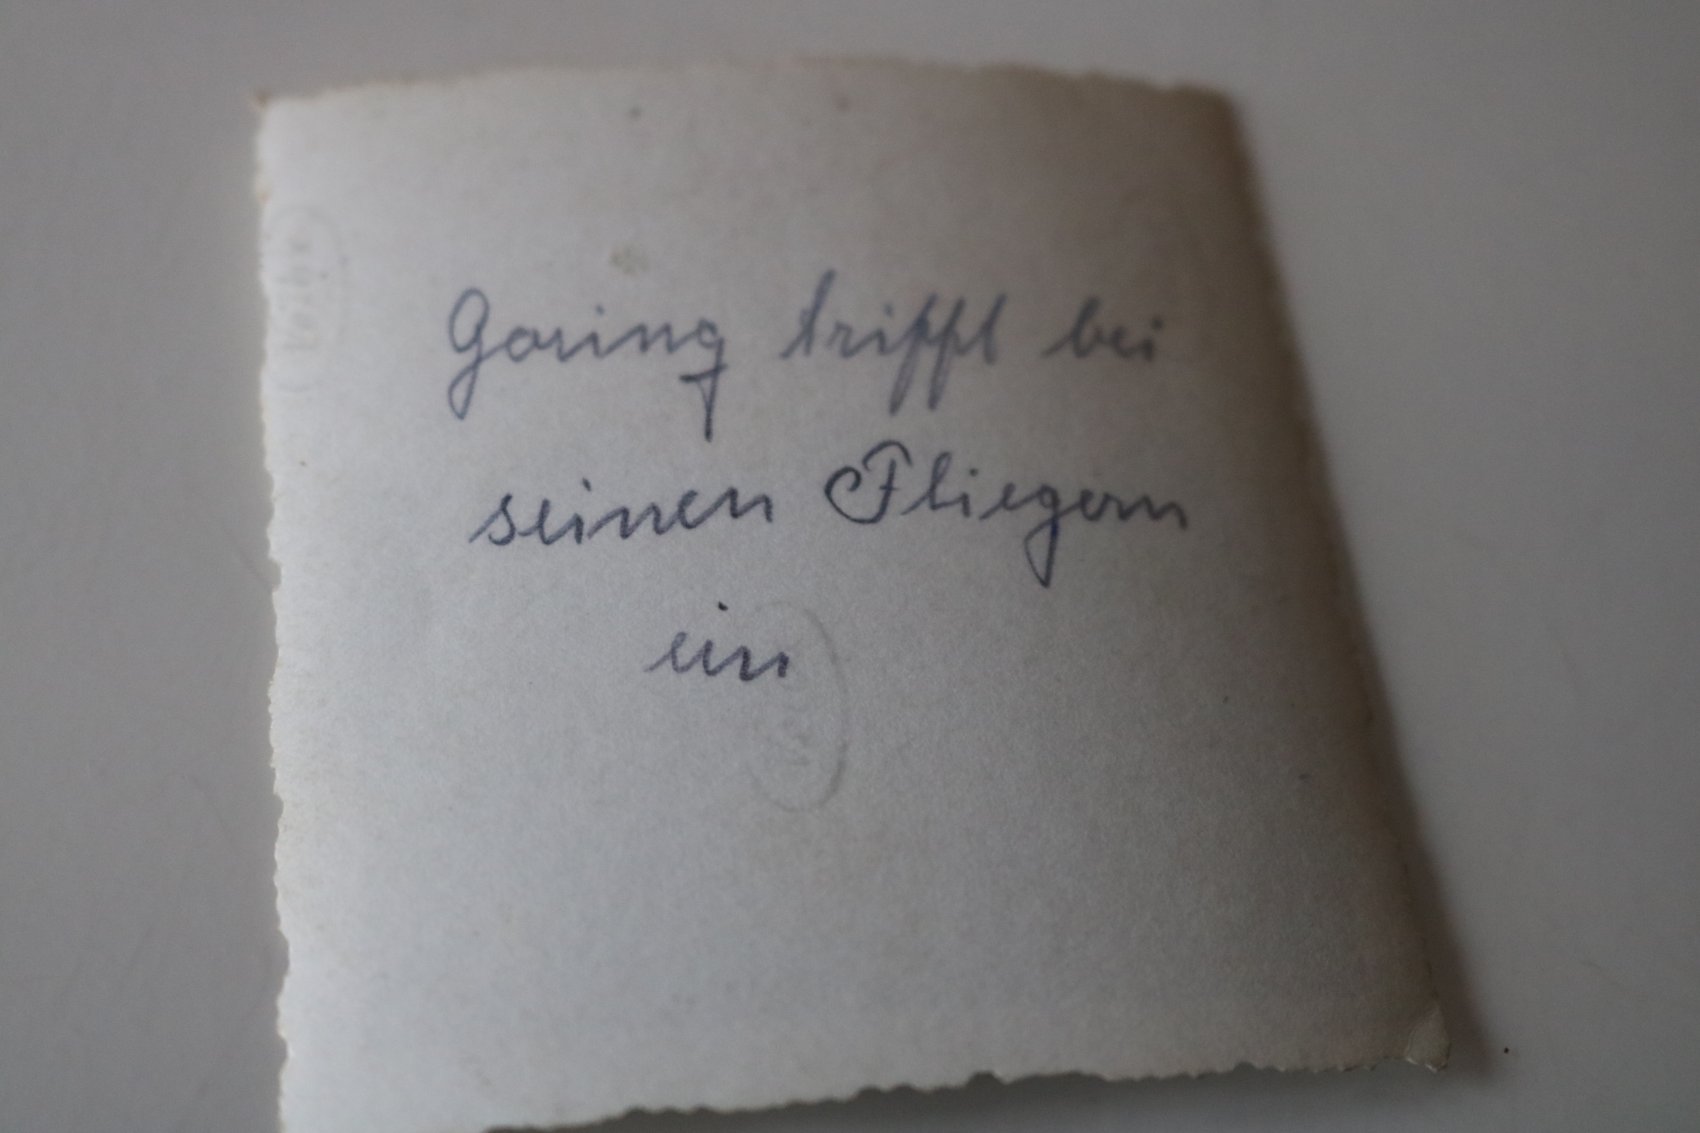 Goring trifft bei
seinen Fliegern
ein